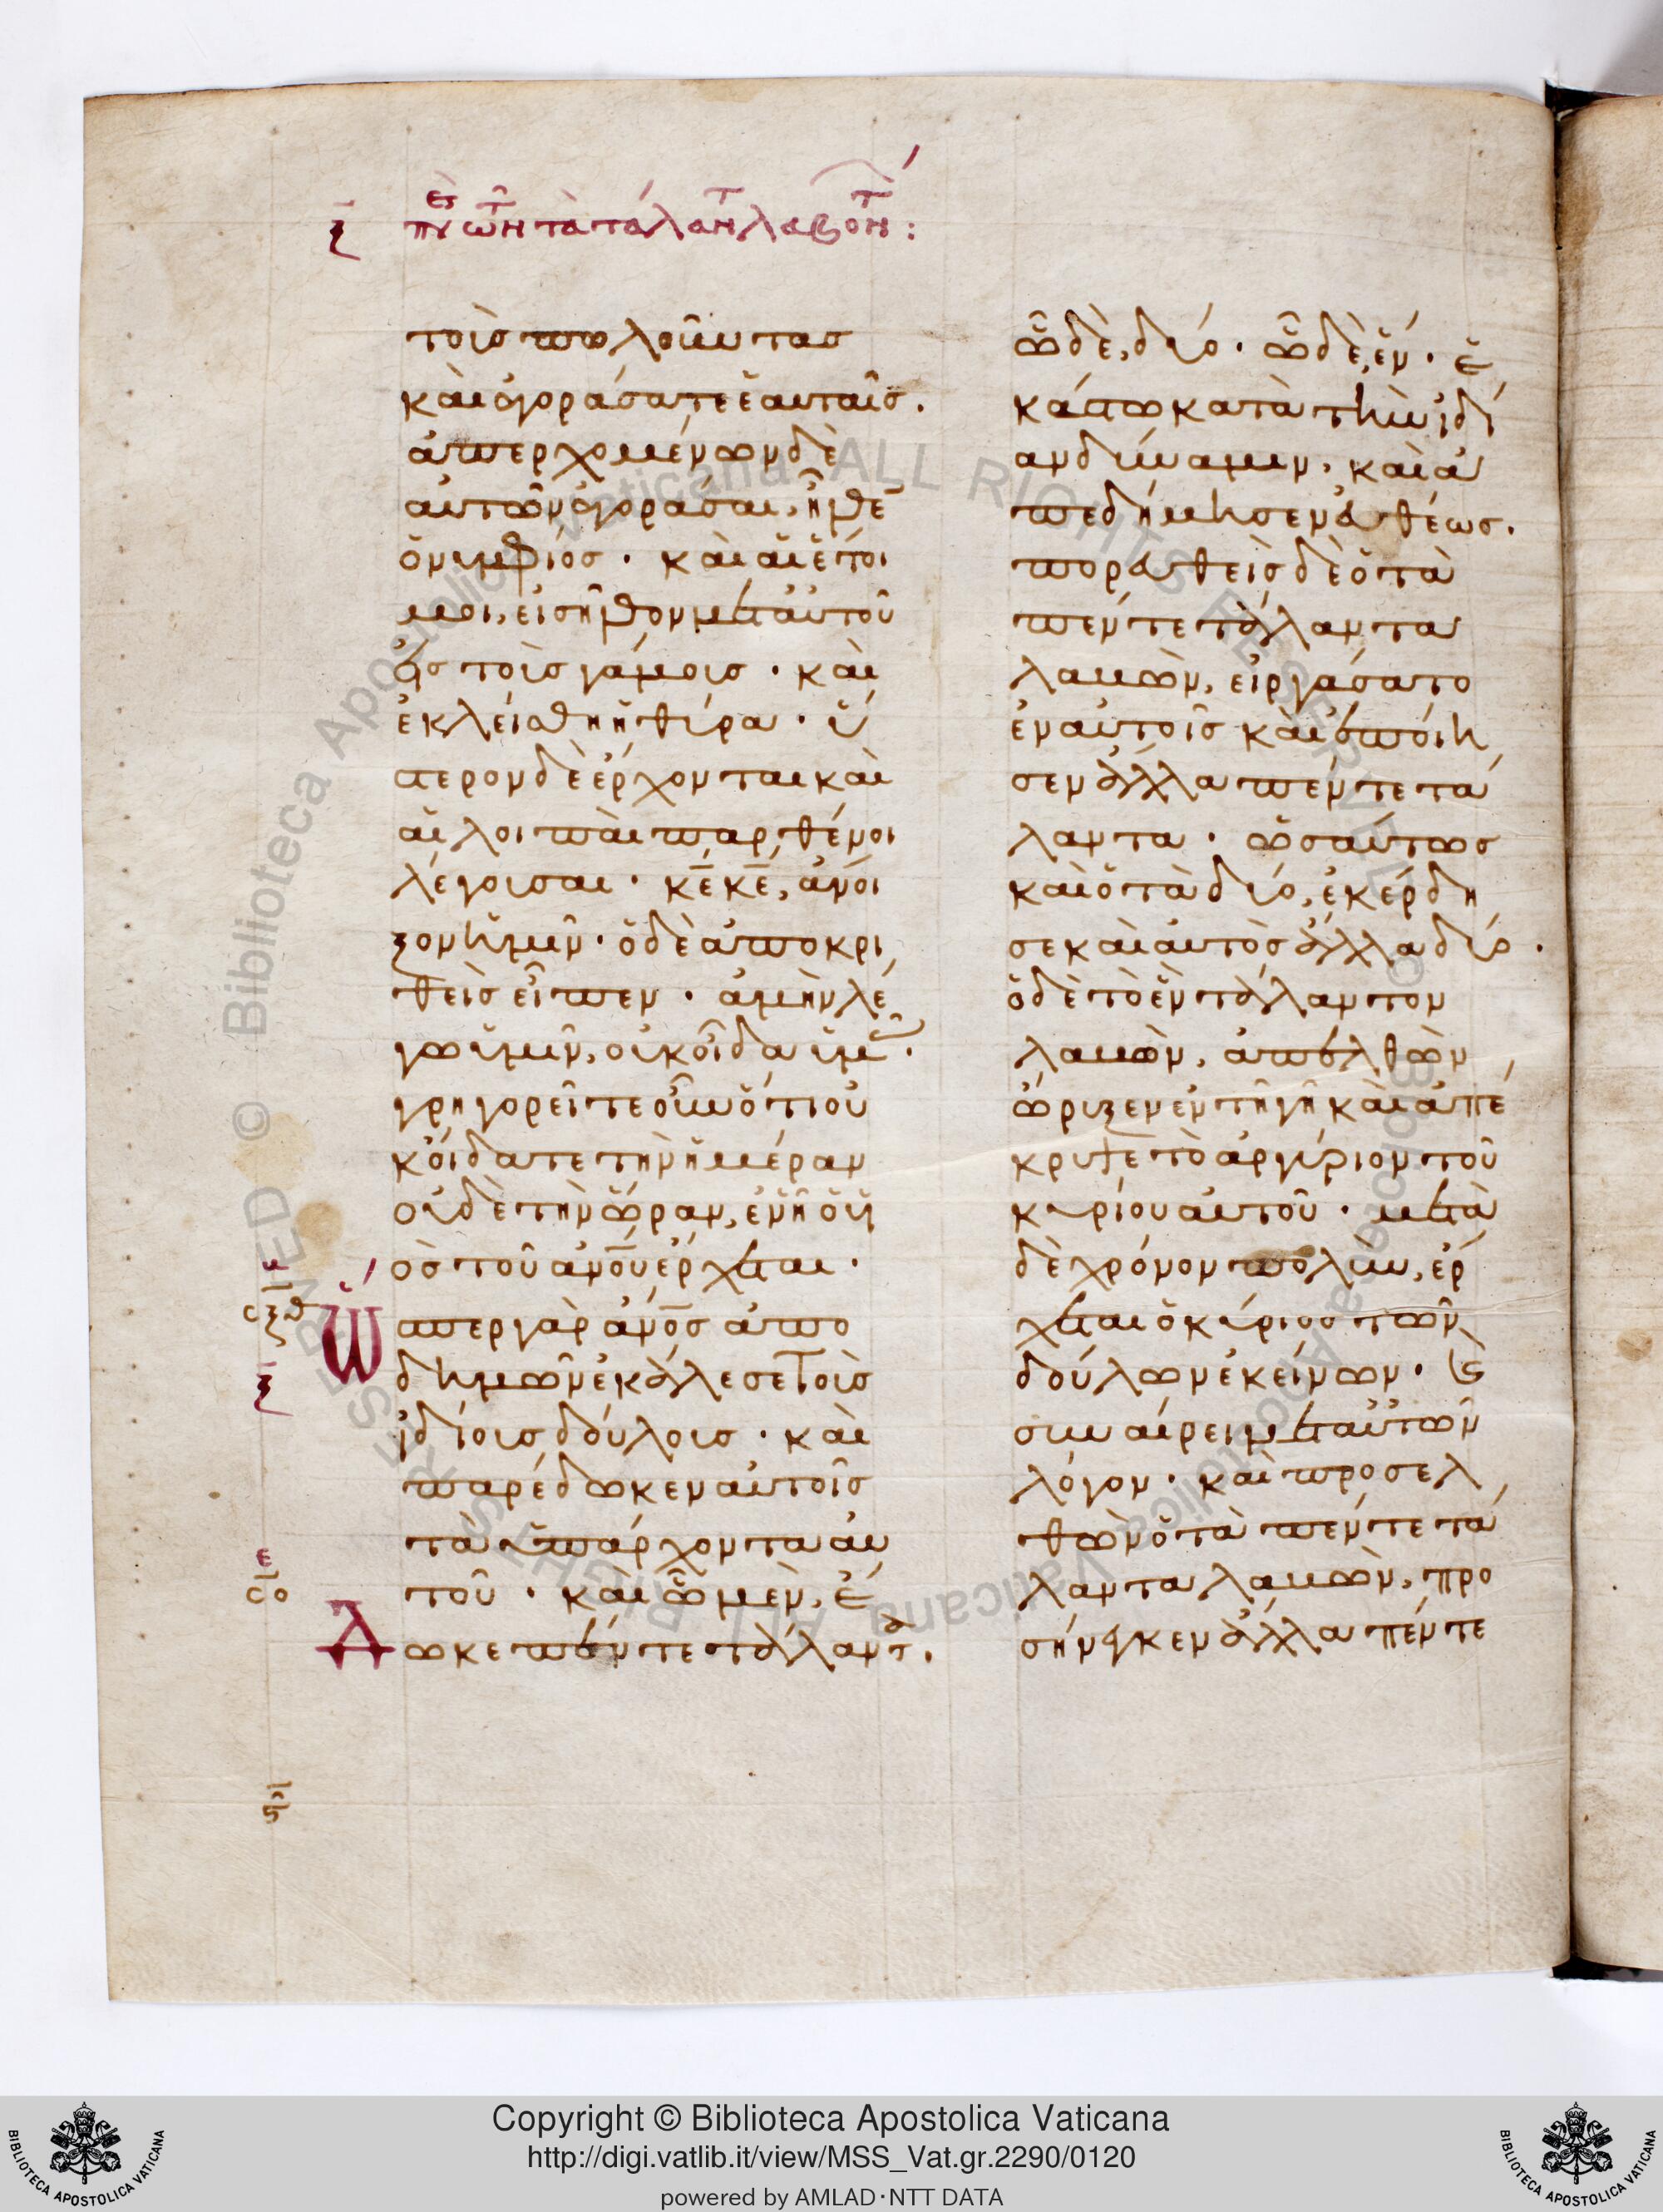 ξ̄ πε τῶν τὰ τάλαντ λαβόντ :
τοὺς πωλοῦντας
καὶ ἀγοράσατε ἑαυταῖς.
ἀπερχομένων δὲ
αὐτῶν ἀγοράσαι, ἦλθε
ὁ νυμφίος · καὶ αἱ ἕτοι
μοι, εἰσῆλθον μετ αὐτοῦ
εἰς τοὺς γάμους · καὶ
ἐκλείσθη ἡ θύρα · ὕ
στερον δὲ ἔρχονται καὶ
αἱ λοιπαὶ παρθένοι
λέγουσαι · κ̅ε̅ κ̅ε̅, ἄνοι
ξον ἡμῖν · ὁ δὲ ἀποκρι
θεὶς εἶπεν · ἀμὴν λέ
γω ὑμῖν, οὐκ οἶδα ὑμᾶς ·
γρηγορεῖτε οὖν ὅτι οὐ
κ οἴδατε τὴν ἡμέραν
οὐδὲ τὴν ὥραν, ἐν ᾗ ὁ υἱ
ὸς τοῦ ἀν̅ο̅υ̅ ἔρχεται ·
ε
σξθ
Ὥ
σπερ γὰρ ἄν̅ο̅ς̅ ἀπο
ξ̄
δημῶν ἐκάλεσε τοὺς
ἰδίους δούλους · καὶ
παρέδωκεν αὐτοῖς
τὰ ὑπάρχοντα αὐ
ε
σο
τοῦ · καὶ ᾧ μὲν, ἔ
Δ
ωκε πέντε τάλαντ.
ᾧ δὲ, δύο · ᾧ δὲ, ἕν · ἑ
κάστω κατὰ τὴν ἰδί
αν δύναμιν, καὶ ἀ
πεδήμησεν εὐθέως.
πορευθεὶς δὲ ὁ τὰ
πέντε τάλαντα
λαβὼν, εἰργάσατο
ἐν αὐτοῖς καὶ ἐποίη
σεν ἄλλα πέντε τά
λαντα · ὡσαύτως
καὶ ὁ τὰ δύο, ἐκέρδη
σε καὶ αὐτὸς ἄλλα δύο ·
ὁ δὲ τὸ ἓν τάλαντον
λαβὼν, ἀπελθὼν
ὤρυξεν ἐν τῆ γῆ καὶ ἀπέ
κρυψε τὸ ἀργύριον τοῦ
κυρίου αὐτοῦ · μετὰ
δὲ χρόνον πολὺν, ἔρ
χεται ὁ κύριος τῶν
δούλων ἐκείνων · καὶ
συναίρει μετ αὐτῶν
λόγον · καὶ προσελ
θὼν ὁ τὰ πέντε τά
λαντα λαβὼν, προ
σήνεγκεν ἄλλα πέντε
Copyright © Biblioteca Apostolica Vaticana
http://digi.vatlib.it/view/MSS_Vat.gr.2290/0120
powered by AMLAD·NTT DATA
BIBLIOTECA APOSTOLICA VATICANA
BIBLIOTECA APOSTOLICA VATICANA